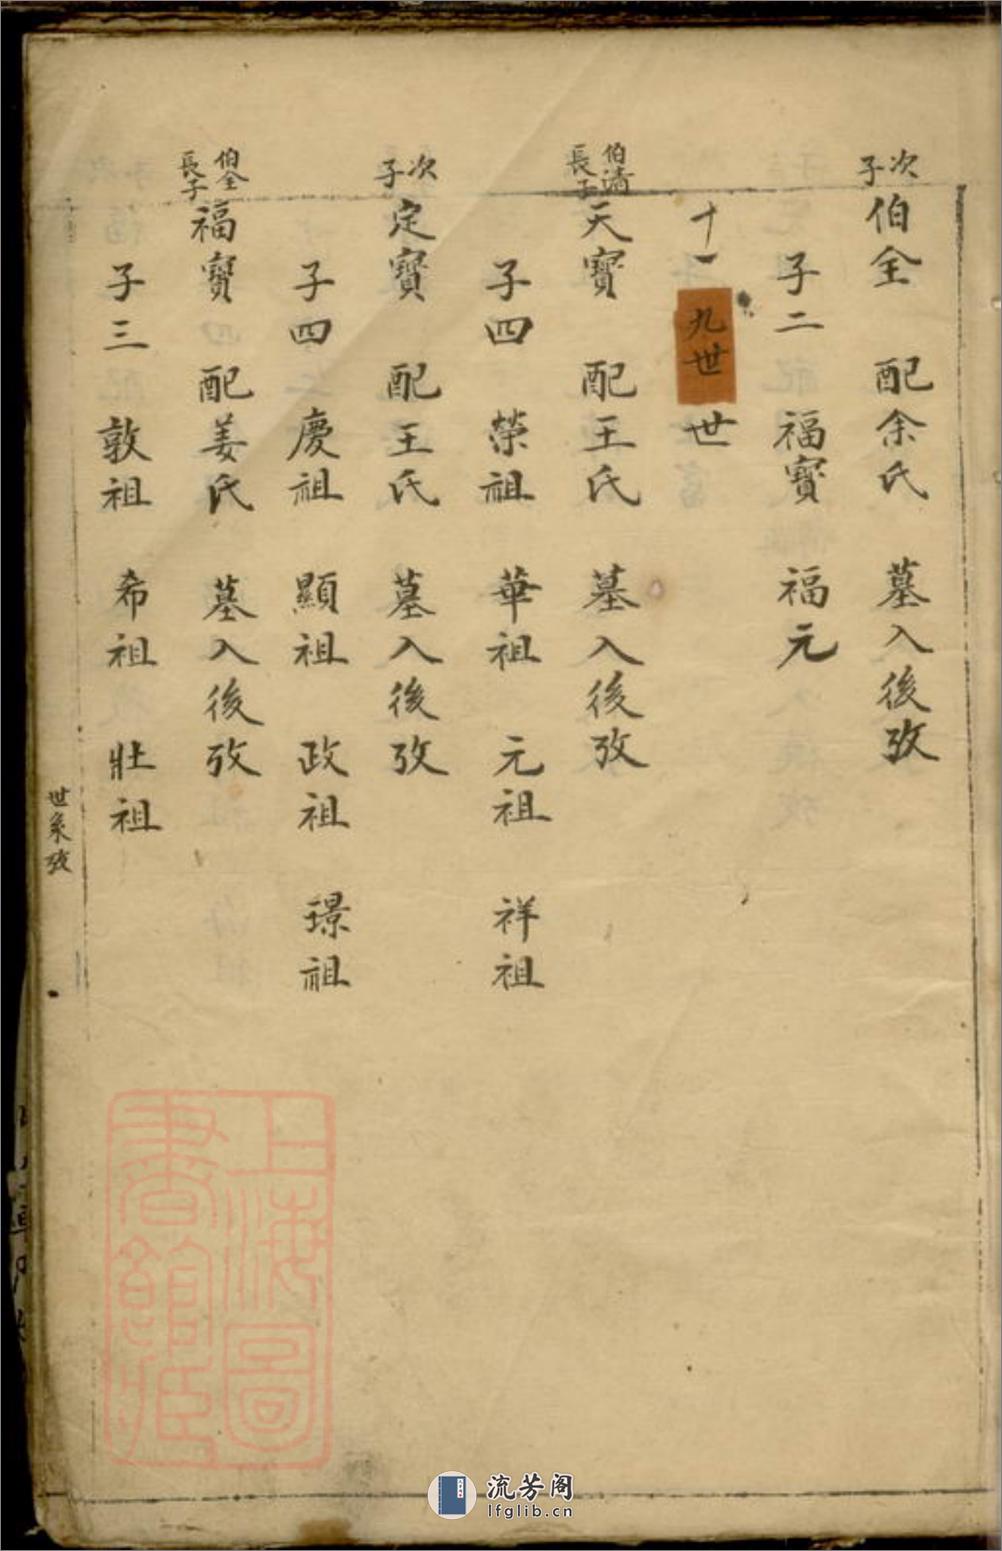 次子
伯全 配余氏 墓入後攷
子二 福寶 福元
十一 九世 世
伯濤長子
天寶 配王氏 墓入後攷
子四 榮祖 華祖 元祖 祥祖
次子
定寶 配王氏 墓入後攷
子四 慶祖 顯祖 政祖 璟祖
伯全長子
福寶 配姜氏 墓入後攷
子三 敦祖 希祖 壯祖
世系攷
上海圖書館藏
流芳阁
lfglib.cn